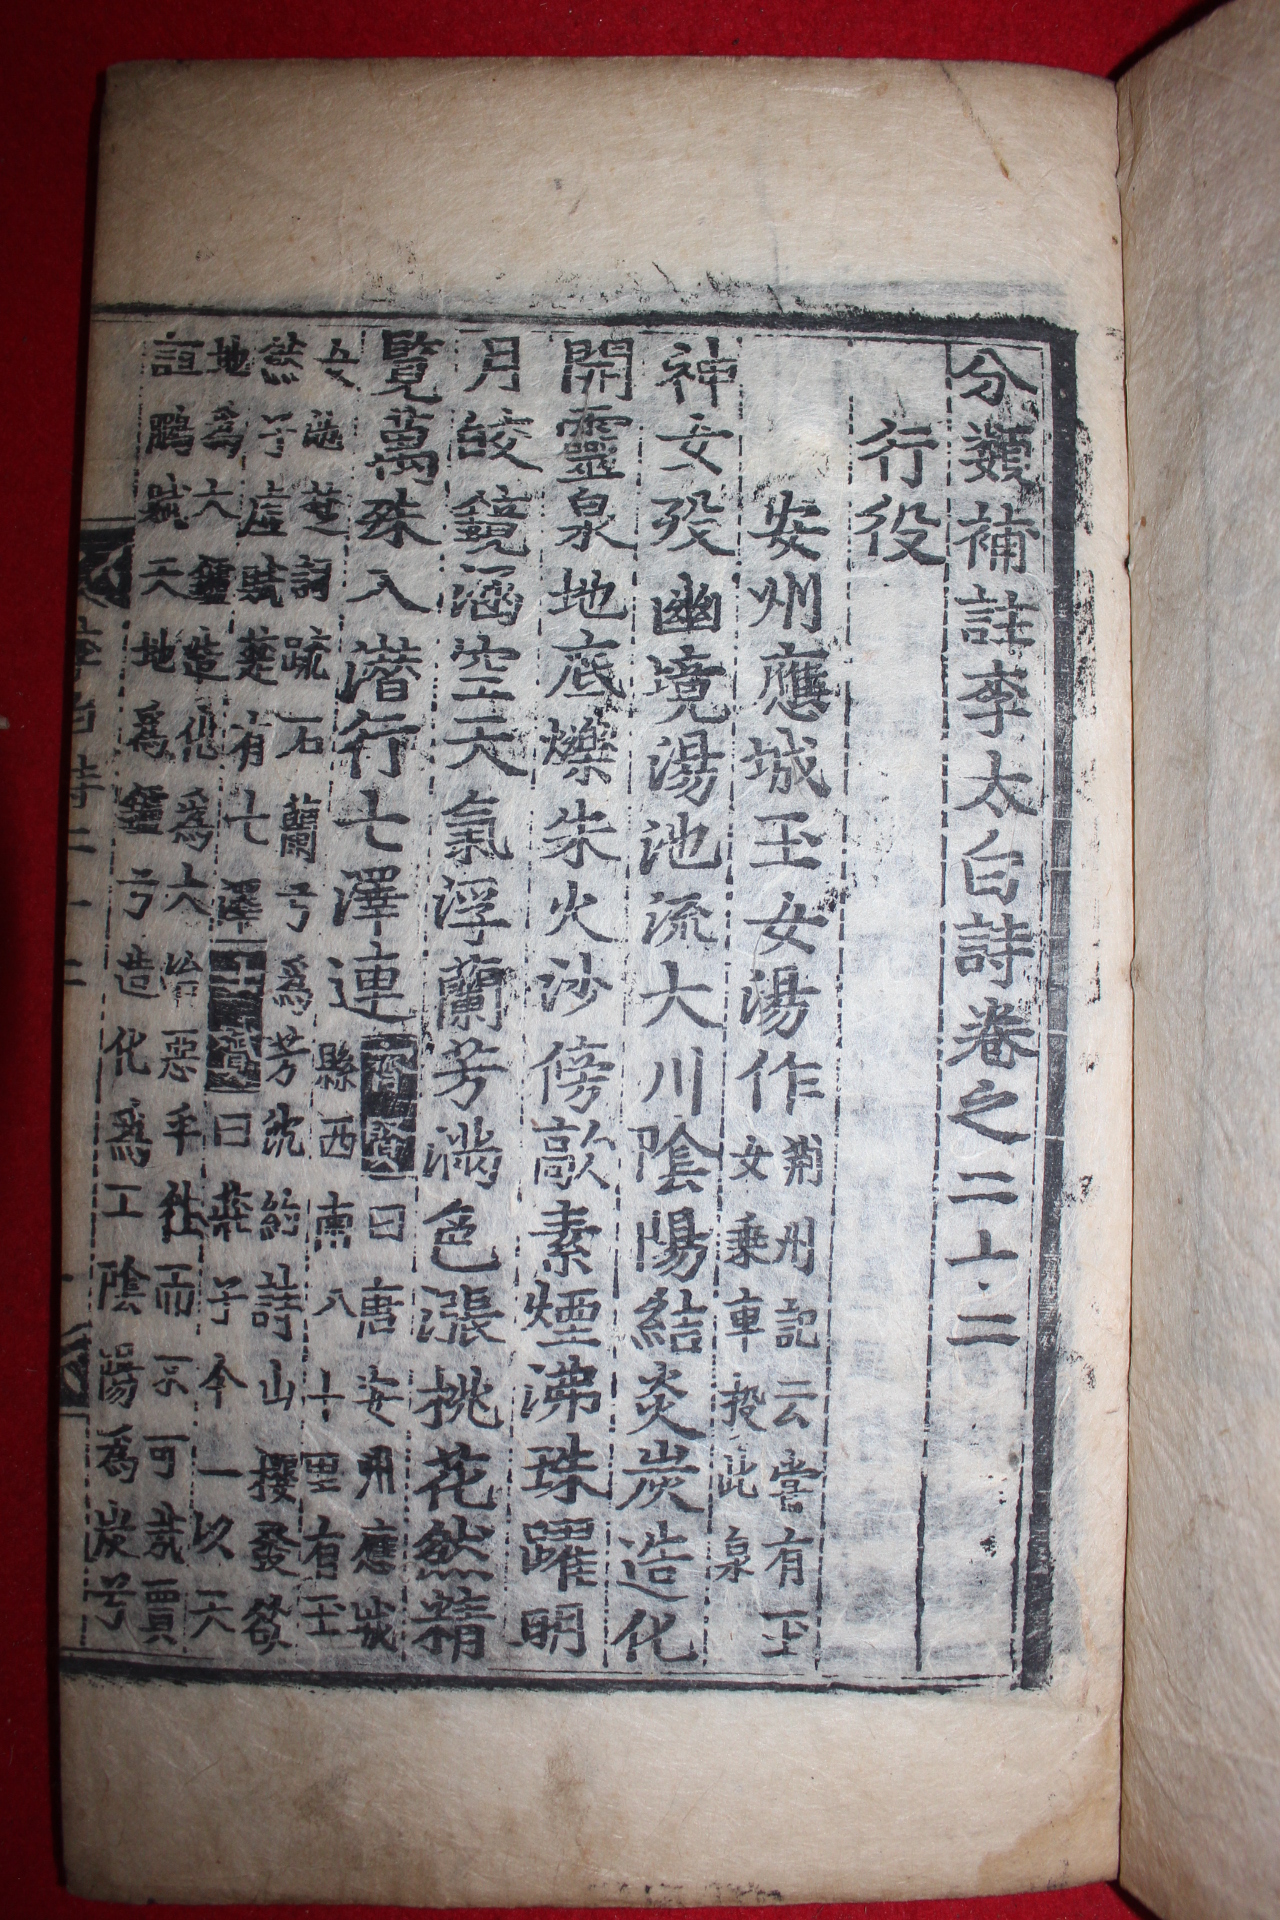 分類補註李太白詩卷之二十二
行役
安州應城玉女湯作
荊州記云嘗有玉
女乘車投此泉
神女歿幽境湯池流大川陰陽結炎炭造化
開靈泉地底爍朱火沙傍歊素煙沸珠躍明
月皎鏡涵空天氣浮蘭芳滿色漲桃花然精
覽萬殊入潛行七澤連
齊賢曰唐安州應城
縣西南八十里有玉
女湯楚詞疏石蘭兮為芳沈約詩山櫻發欲
然子虛賦楚有七澤士贇曰莊子今一以天
地為大鑪造化為大冶惡乎往而不可哉賈
誼鵬賦天地為鑪兮造化為工陰陽為炭兮
李白詩二十二